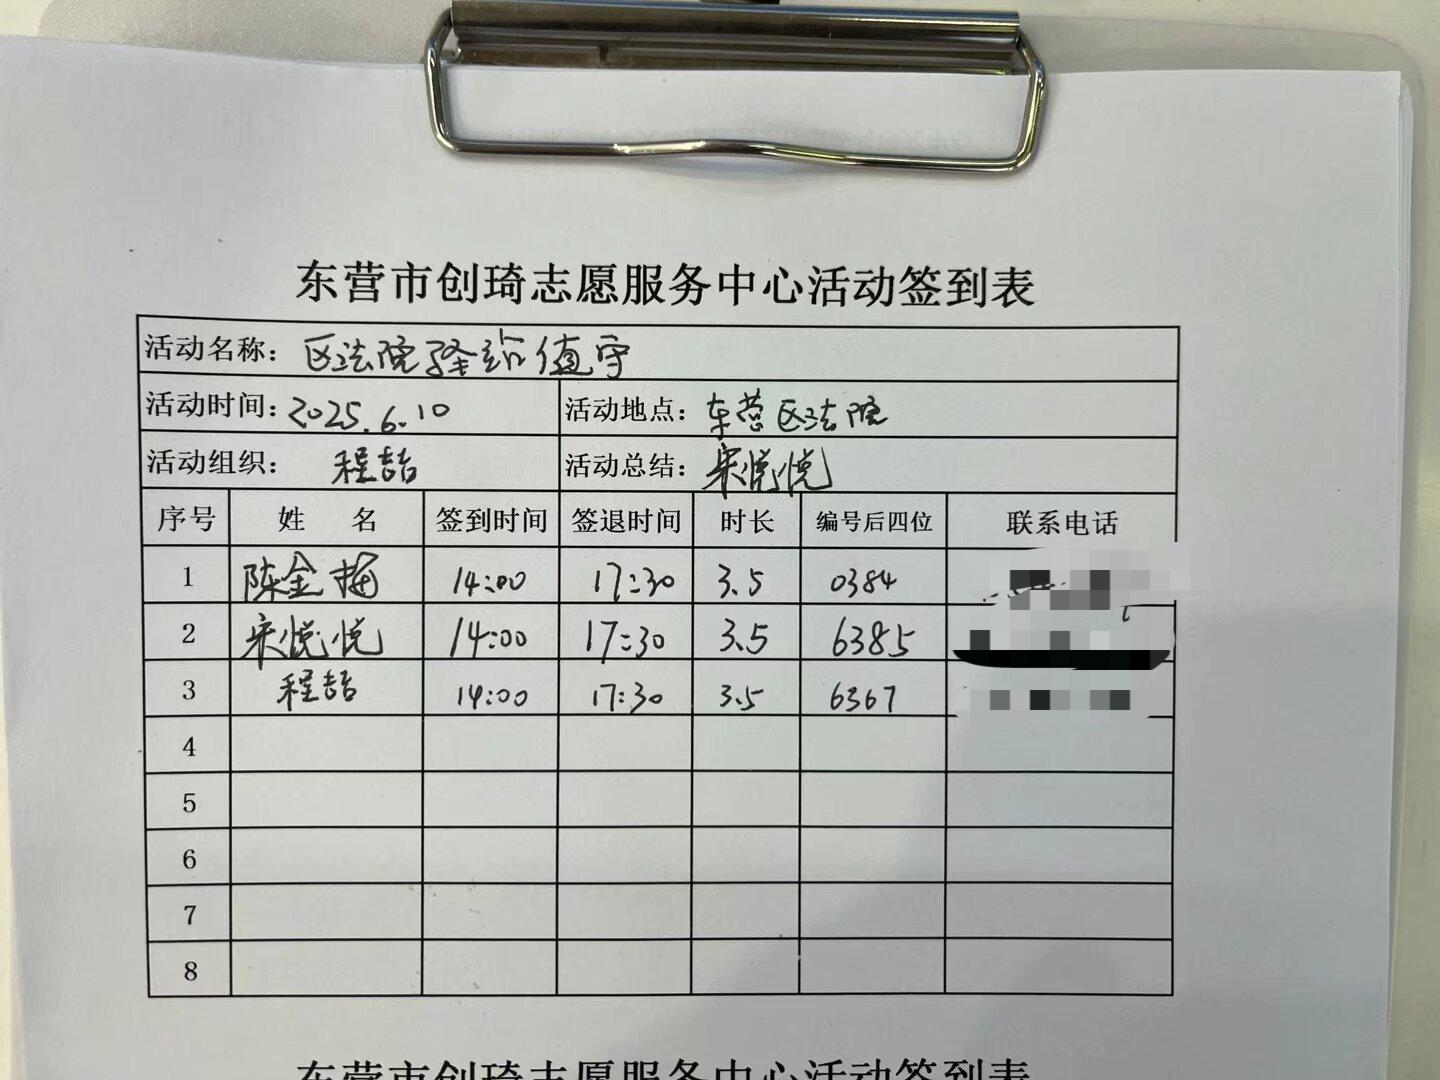 东营市创琦志愿服务中心活动签到表
活动名称：区法院驿站值守
活动时间：2025.6.10 活动地点：东营区法院
活动组织：程喆 活动总结：宋悦悦
序号 姓 名 签到时间 签退时间 时长 编号后四位 联系电话
1 陈金梅 14:00 17:30 3.5 0384
2 宋悦悦 14:00 17:30 3.5 6385
3 程喆 14:00 17:30 3.5 6367
4
5
6
7
8
东营市创琦志愿服务中心活动签到表